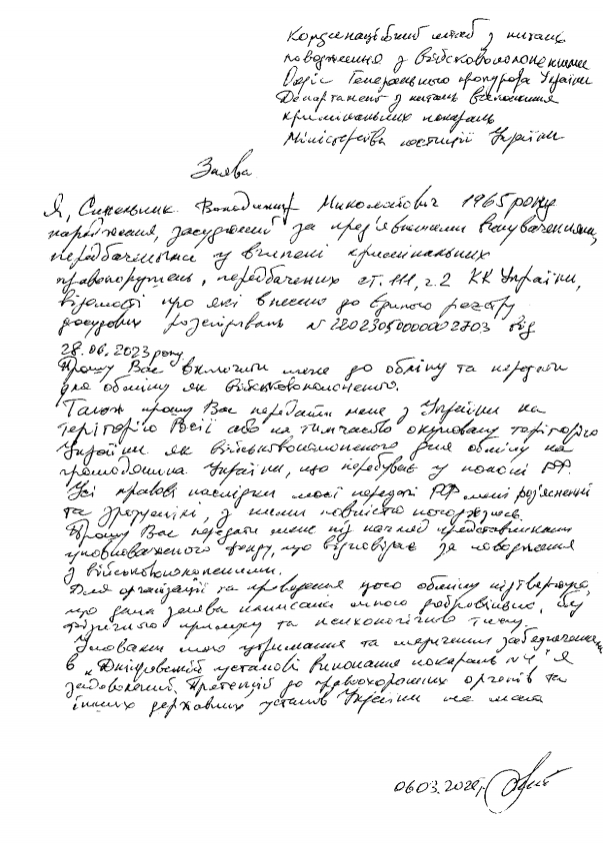 Координаційний штаб з питань
поводження з військовополоненими
Офіс Генерального прокурора України
Департамент з питань виконання
кримінальних покарань
Міністерства юстиції України
Заява
Я, Синельник Володимир Миколайович 1965 року
народження, засуджений за пред'явленими звинуваченнями,
передбаченими у вчинені кримінальних
правопорушень, передбачених ст. 111, ч. 2 КК України,
відомості про які внесено до єдиного реєстру
досудових розслідувань № від
28.06.2023 року.
Прошу Вас включити мене до обміну та передати
для обміну як військовополоненого.
Також прошу Вас передати мене з України на
територію або на тимчасово окуповану територію
України як військовополоненого для обміну на
громадянина України, що перебуває у полоні РФ.
Усі правові наслідки моєї передачі РФ мені роз'ясненні
та зрозумілі, з ними повністю погоджуюсь.
Прошу Вас передати мене під нагляд представникам
уповноваженого органу, що відповідає за поводження
з військовополоненими.
Для організації та проведення цього обміну підтверджую,
що дана заява написана мною добровільно, без
фізичного примусу та психологічного тиску.
Умовами мого утримання та медичним забезпеченням
в "Дніпровській установі виконання покарань №4" я
задоволений. Претензій до правоохоронних органів та
інших державних установ України не маю
06.03.